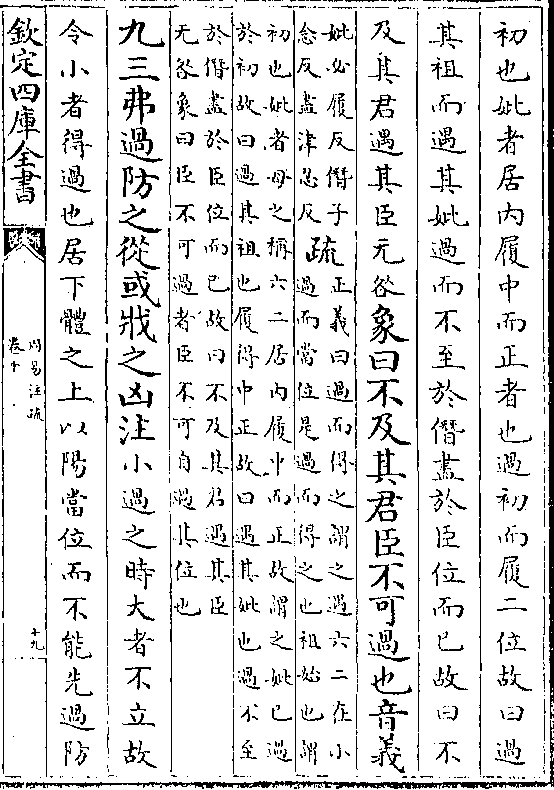 初也妣者居内履中而正者也過初而履二位故曰過
其祖而遇其妣過而不至於僭盡於臣位而已故曰不
及其君遇其臣无咎象曰不及其君臣不可過也音義
妣必履反僭子
念反盡津忍反
疏
正義曰過而得之謂之遇六二在小
過而當位是過而得之也祖始也謂
初也妣者母之稱六二居内履中而正故謂之妣已過
於初故曰過其祖也履得中正故曰遇其妣也過不至
於僭盡於臣位而已故曰不及其君遇其臣
无咎象曰臣不可過者臣不可自過其位也
九三弗過防之從或戕之凶注小過之時大者不立故
令小者得過也居下體之上以陽當位而不能先過防
欽定四庫全書
周易注疏
卷十
十九